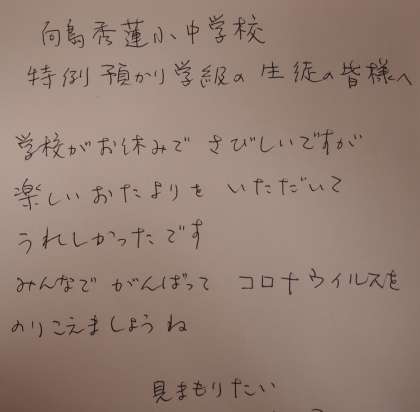 向島秀蓮小中学校
特例預かり学級の生徒の皆様へ
学校がお休みで さびしいですが
楽しいおたよりを いただいて
うれしかったです
みんなで がんばって コロナウイルスを
のりこえましょうね
見まもりたい